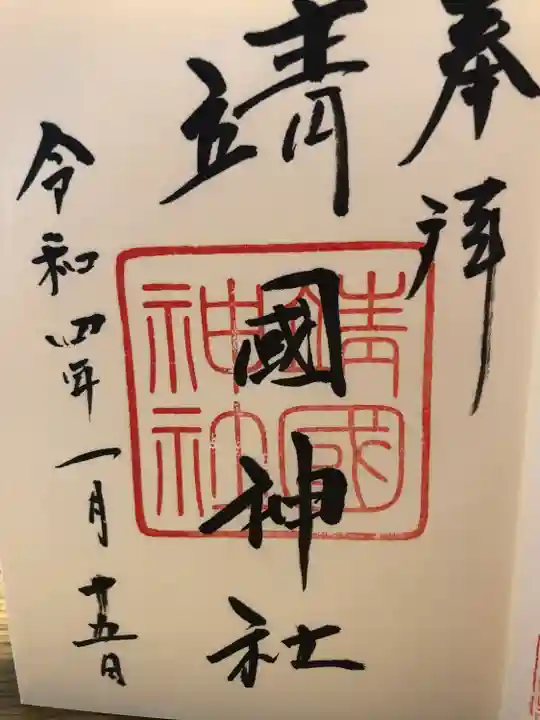 奉拝
靖國神社
靖國神社
令和四年一月十五日